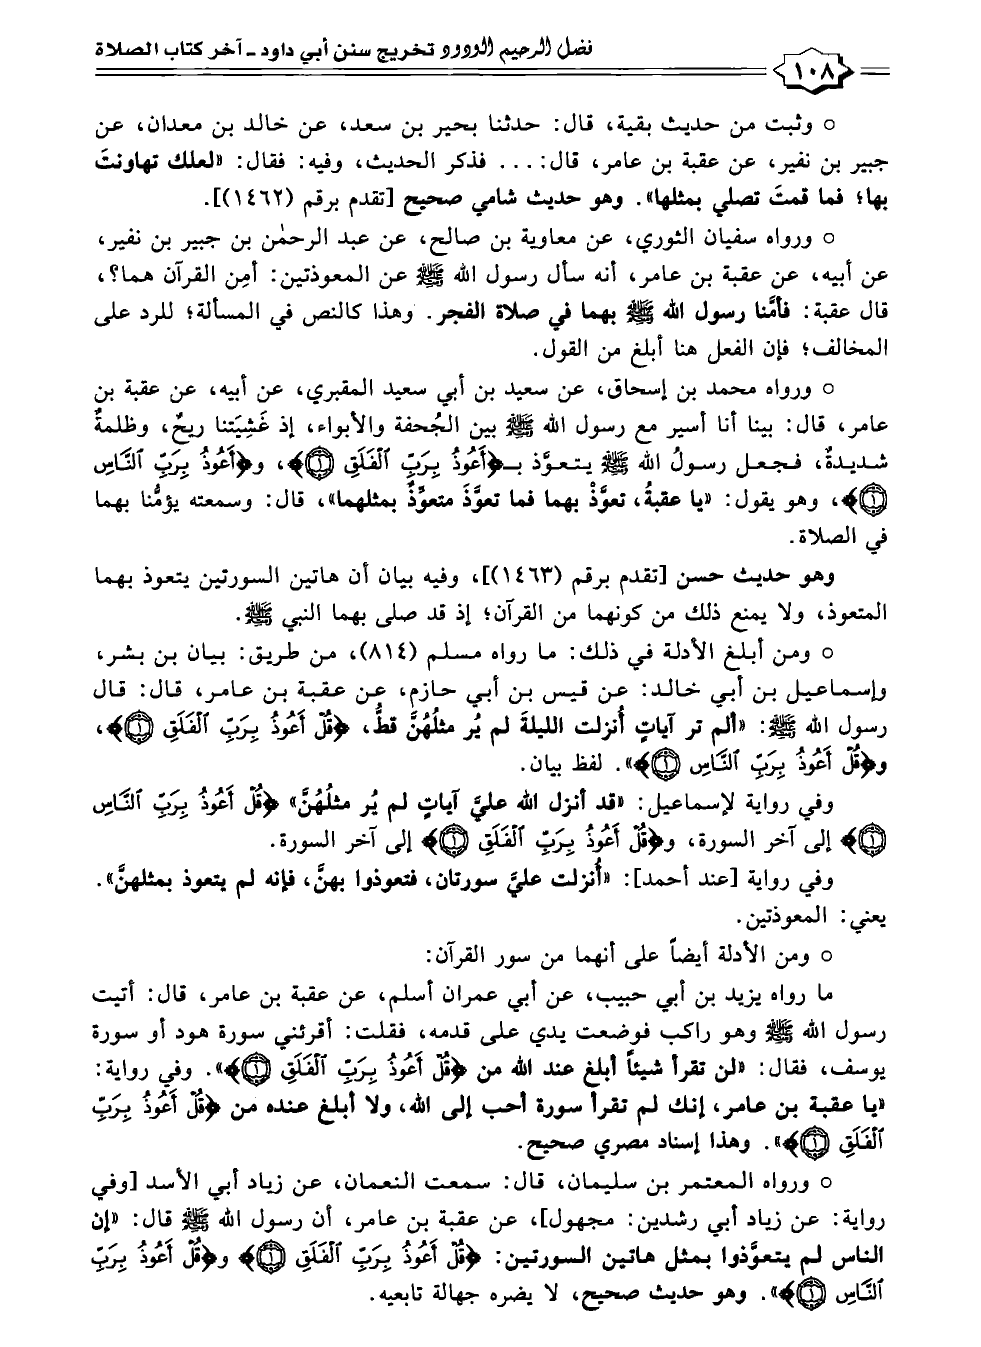 فضل الرحيم الودود تخريج سنن أبي داود - آخر كتاب الصلاة
١٠٨
○ وثبت من حديث بقية، قال: حدثنا بحير بن سعد، عن خالد بن معدان، عن
جبير بن نفير، عن عقبة بن عامر، قال: ... فذكر الحديث، وفيه: فقال: «لعلك تهاونتَ
بها؛ فما قمتَ تصلي بمثلها». وهو حديث شامي صحيح [تقدم برقم (١٤٦٢)].
○ ورواه سفيان الثوري، عن معاوية بن صالح، عن عبد الرحمٰن بن جبير بن نفير،
عن أبيه، عن عقبة بن عامر، أنه سأل رسول الله ﷺ عن المعوذتين: أمِن القرآن هما؟،
قال عقبة: فأمَّنا رسول الله ﷺ بهما في صلاة الفجر. وهذا كالنص في المسألة؛ للرد على
المخالف؛ فإن الفعل هنا أبلغ من القول.
○ ورواه محمد بن إسحاق، عن سعيد بن أبي سعيد المقبري، عن أبيه، عن عقبة بن
عامر، قال: بينا أنا أسير مع رسول الله ﷺ بين الجُحفة والأبواء، إذ غَشِيَتنا ريحٌ، وظلمةٌ
شديدةٌ، فجعل رسولُ الله ﷺ يتعوَّذ بـ﴿أَعُوذُ بِرَبِّ ٱلْفَلَقِ ۝١﴾، و﴿أَعُوذُ بِرَبِّ ٱلنَّاسِ
۝١﴾، وهو يقول: «يا عقبةُ، تعوَّذْ بهما فما تعوَّذَ متعوِّذٌ بمثلهما»، قال: وسمعته يؤمُّنا بهما
في الصلاة.
وهو حديث حسن [تقدم برقم (١٤٦٣)]، وفيه بيان أن هاتين السورتين يتعوذ بهما
المتعوذ، ولا يمنع ذلك من كونهما من القرآن؛ إذ قد صلى بهما النبي ﷺ.
○ ومن أبلغ الأدلة في ذلك: ما رواه مسلم (٨١٤)، من طريق: بيان بن بشر،
وإسماعيل بن أبي خالد: عن قيس بن أبي حازم، عن عقبة بن عامر، قال: قال
رسول الله ﷺ: «ألم تر آياتٍ أُنزلت الليلةَ لم يُر مثلُهُنَّ قطُّ، ﴿قُلْ أَعُوذُ بِرَبِّ ٱلْفَلَقِ ۝١﴾،
و﴿قُلْ أَعُوذُ بِرَبِّ ٱلنَّاسِ ۝١﴾». لفظ بيان.
وفي رواية لإسماعيل: «قد أنزل الله عليَّ آياتٍ لم يُر مثلُهُنَّ» ﴿قُلْ أَعُوذُ بِرَبِّ ٱلنَّاسِ
۝١﴾ إلى آخر السورة، و﴿قُلْ أَعُوذُ بِرَبِّ ٱلْفَلَقِ ۝١﴾ إلى آخر السورة.
وفي رواية [عند أحمد]: «أُنزلت عليَّ سورتان، فتعوذوا بهنَّ، فإنه لم يتعوذ بمثلهنَّ».
يعني: المعوذتين.
○ ومن الأدلة أيضاً على أنهما من سور القرآن:
ما رواه يزيد بن أبي حبيب، عن أبي عمران أسلم، عن عقبة بن عامر، قال: أتيت
رسول الله ﷺ وهو راكب فوضعت يدي على قدمه، فقلت: أقرئني سورة هود أو سورة
يوسف، فقال: «لن تقرأ شيئاً أبلغ عند الله من ﴿قُلْ أَعُوذُ بِرَبِّ ٱلْفَلَقِ ۝١﴾». وفي رواية:
«يا عقبة بن عامر، إنك لم تقرأ سورة أحب إلى الله، ولا أبلغ عنده من ﴿قُلْ أَعُوذُ بِرَبِّ
ٱلْفَلَقِ ۝١﴾». وهذا إسناد مصري صحيح.
○ ورواه المعتمر بن سليمان، قال: سمعت النعمان، عن زياد أبي الأسد [وفي
رواية: عن زياد أبي رشدين: مجهول]، عن عقبة بن عامر، أن رسول الله ﷺ قال: «إن
الناس لم يتعوَّذوا بمثل هاتين السورتين: ﴿قُلْ أَعُوذُ بِرَبِّ ٱلْفَلَقِ ۝١﴾ و﴿قُلْ أَعُوذُ بِرَبِّ
ٱلنَّاسِ ۝١﴾». وهو حديث صحيح، لا يضره جهالة تابعيه.